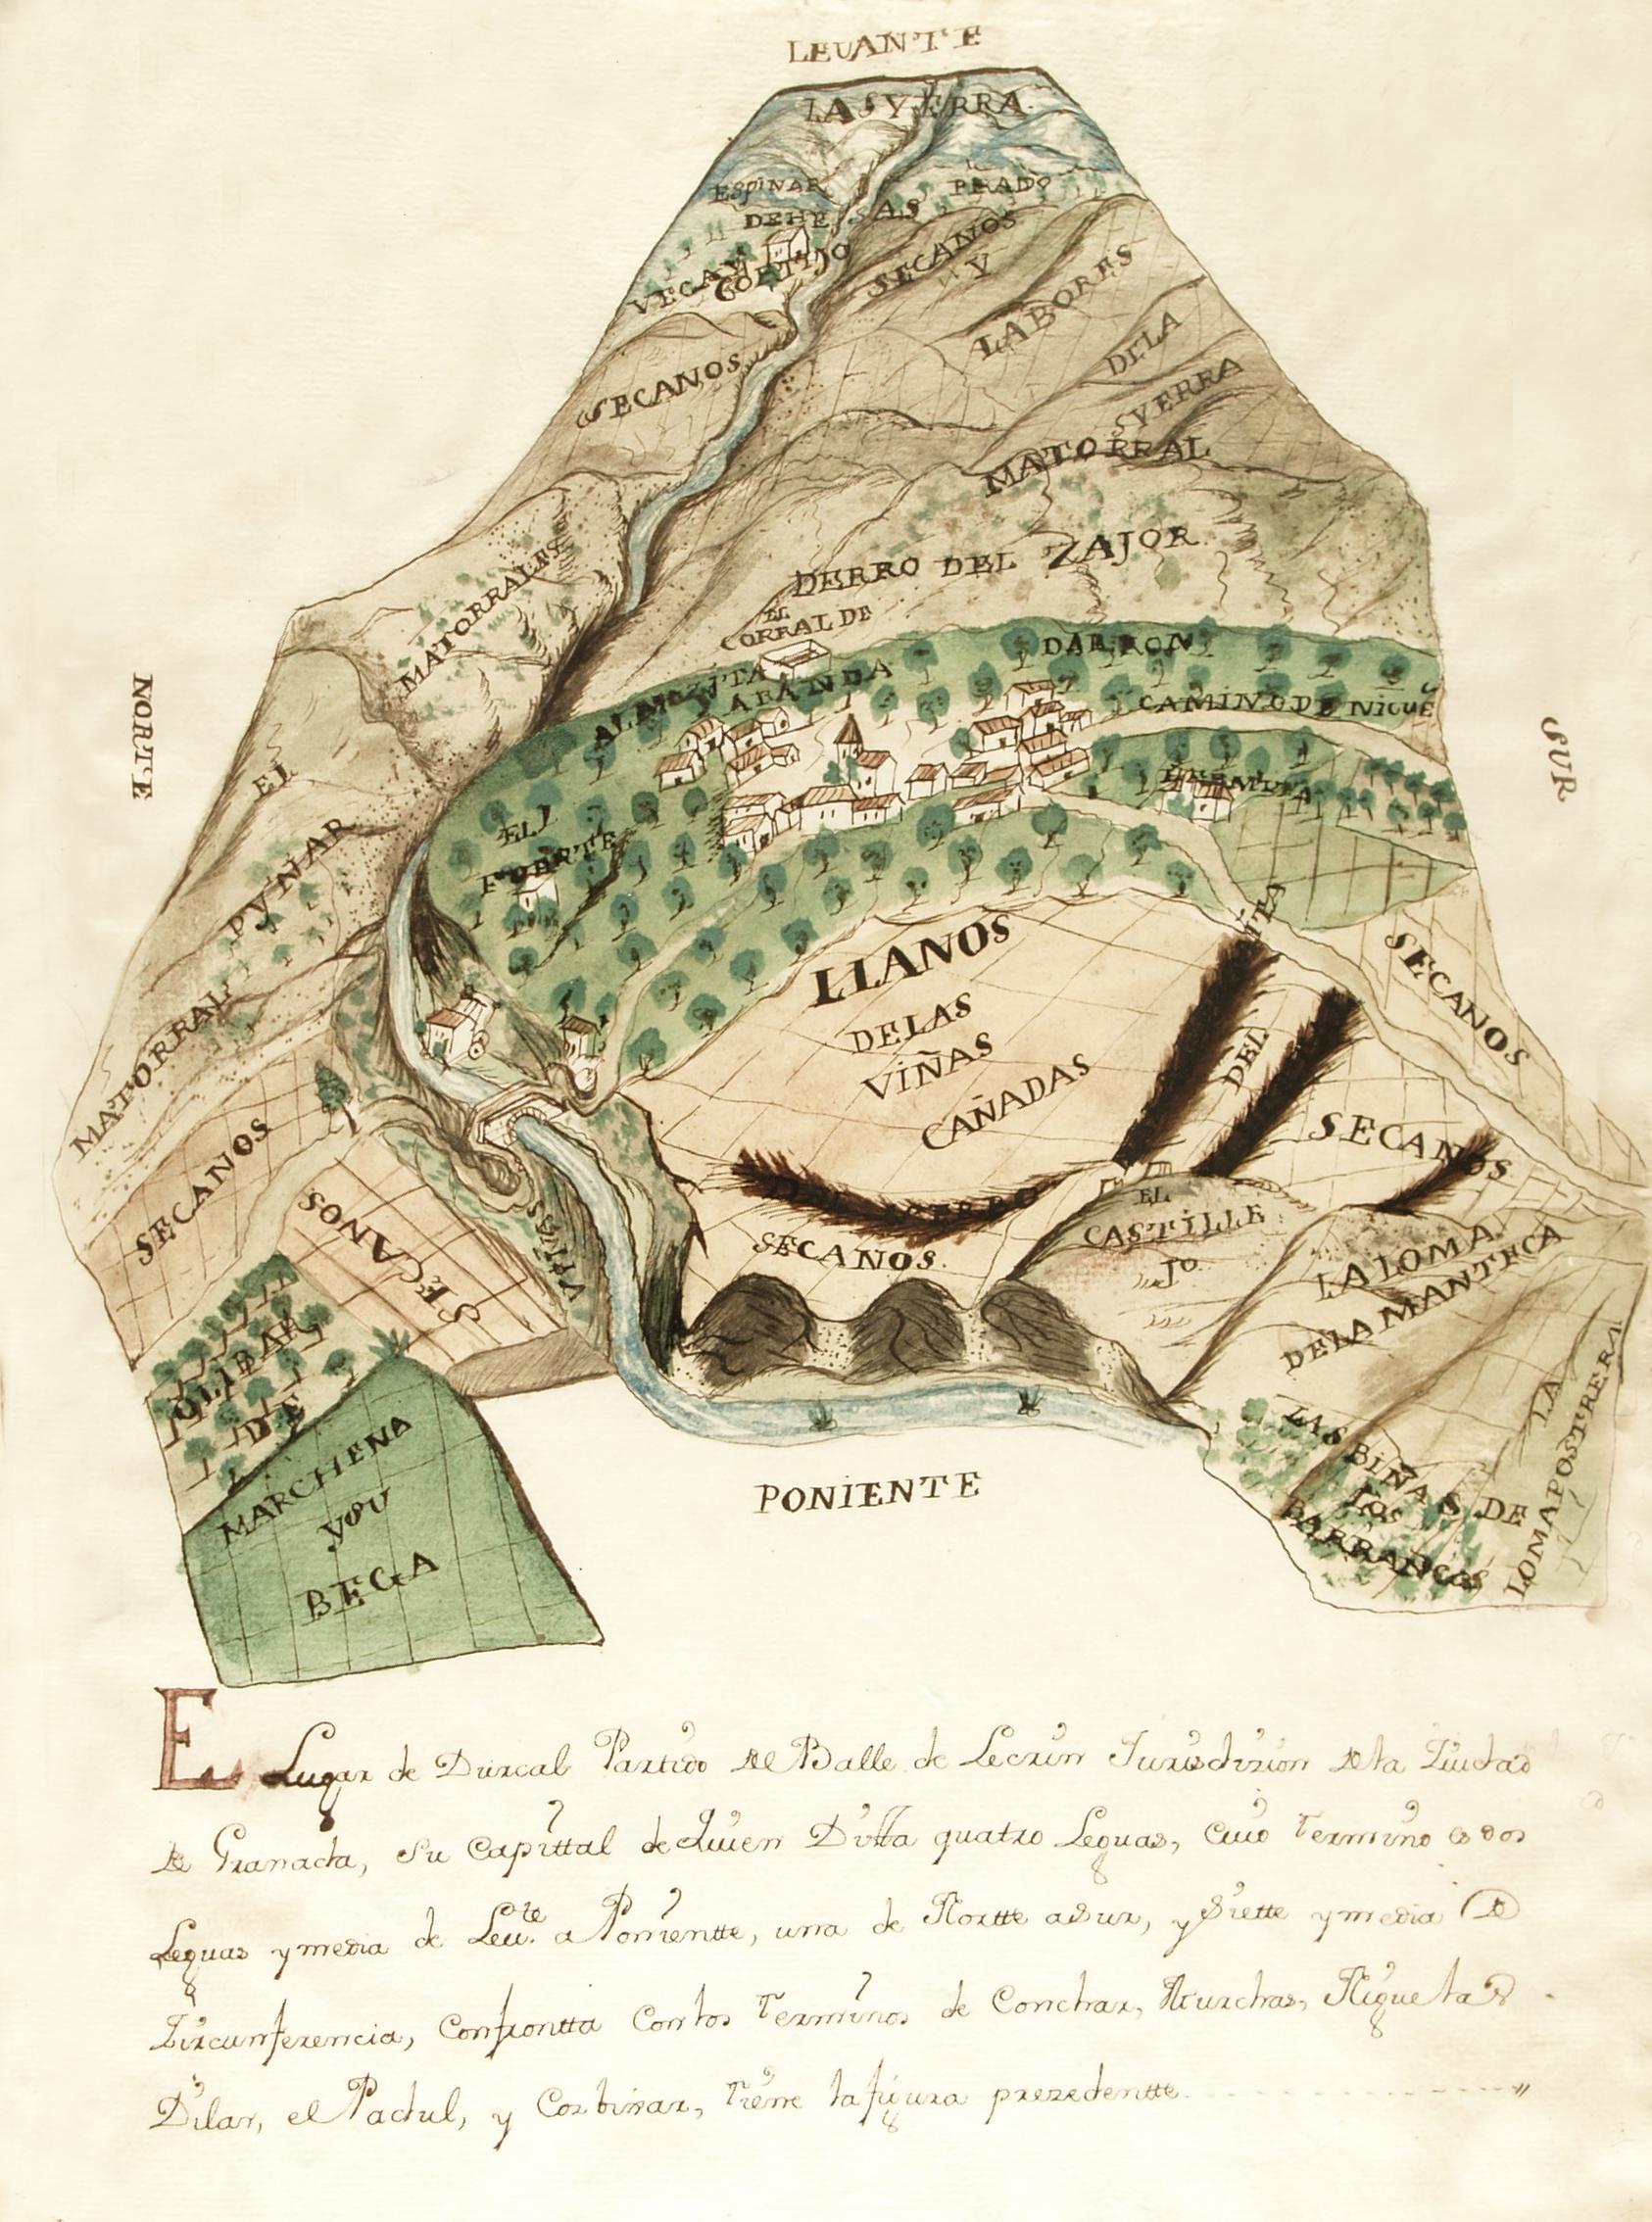 LEUANTE
LA SYERRA
ESPINAR
PRADO
DEHESAS
VEGA Y
CORTIJO
SECANOS
Y
LABORES
DE LA
SYERRA
SECANOS
MATORRAL
MATORRALES
ZERRO DEL ZAJOR
EL
CORRAL DE
ARANDA
ALMOZITA
DARRON
CAMINO DE NIGUE
NORTE
SUR
EL
PYNAR
EL
FUERTE
ERMITA
MATORRAL
LLANOS
DE LAS
VIÑAS
CAÑADAS
DEL
SECANOS
SECANOS
SECANOS
SECANOS
VIÑAS
SECANOS
EL
CASTILLE
JO
LA LOMA
DE LA MANTECA
OLIBAR
DE
MARCHENA
Y SU
BEGA
LAS BIÑAS DE
LOS
BARRANCOS
LA
LOMA POSTRERA
PONIENTE
El Lugar de Durcal Partido del Balle de Lecrin Jurisdizion de la Ziudad
de Granada, su Capittal de Quien Distta quatro Leguas, cuio Termino es dos
Leguas y media de Leu.te a Ponientte, una de Nortte a Sur, y Siette y media de
Zircunferencia, Confrontta Con los Terminos de Conchar, Murchas, Niguelas
Dilar, el Padul, y Cozbixar, Tiene la figura prezedentte